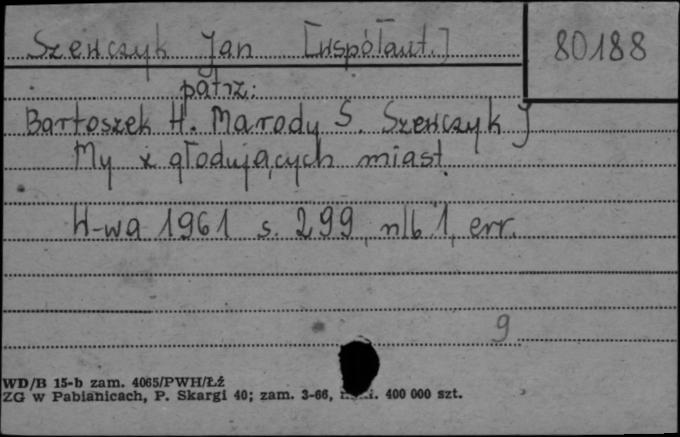 Szewczyk Jan [współaut.]
80188
patrz:
Bartoszek H. Marody S. Szewczyk J
My z głodujących miast
W-wa 1961 s. 299, nlb 1, err.
9
WD/B 15-b zam. 4065/PWH/Łź
ZG w Pabianicach, P. Skargi 40; zam. 3-66, 400 000 szt.